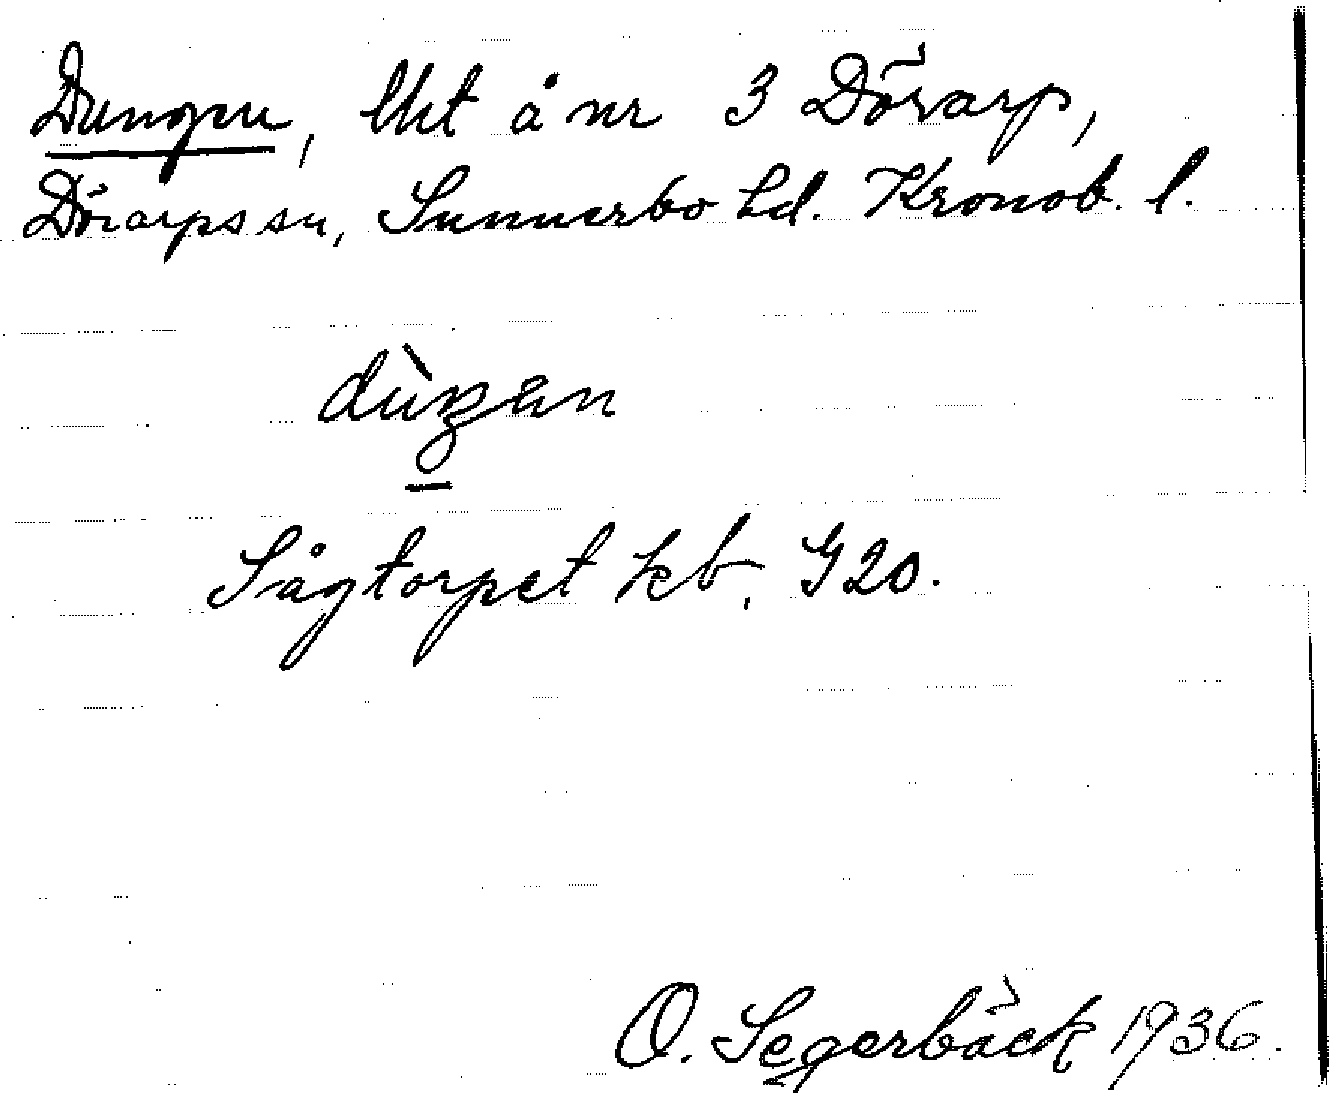 Dungen, lht å nr 3 Dörarp,
Dörarps sn, Sunnerbo hd. Kronob. l.
dùŋən
Sågtorpet kb. G20.
O. Segerbäck 1936.